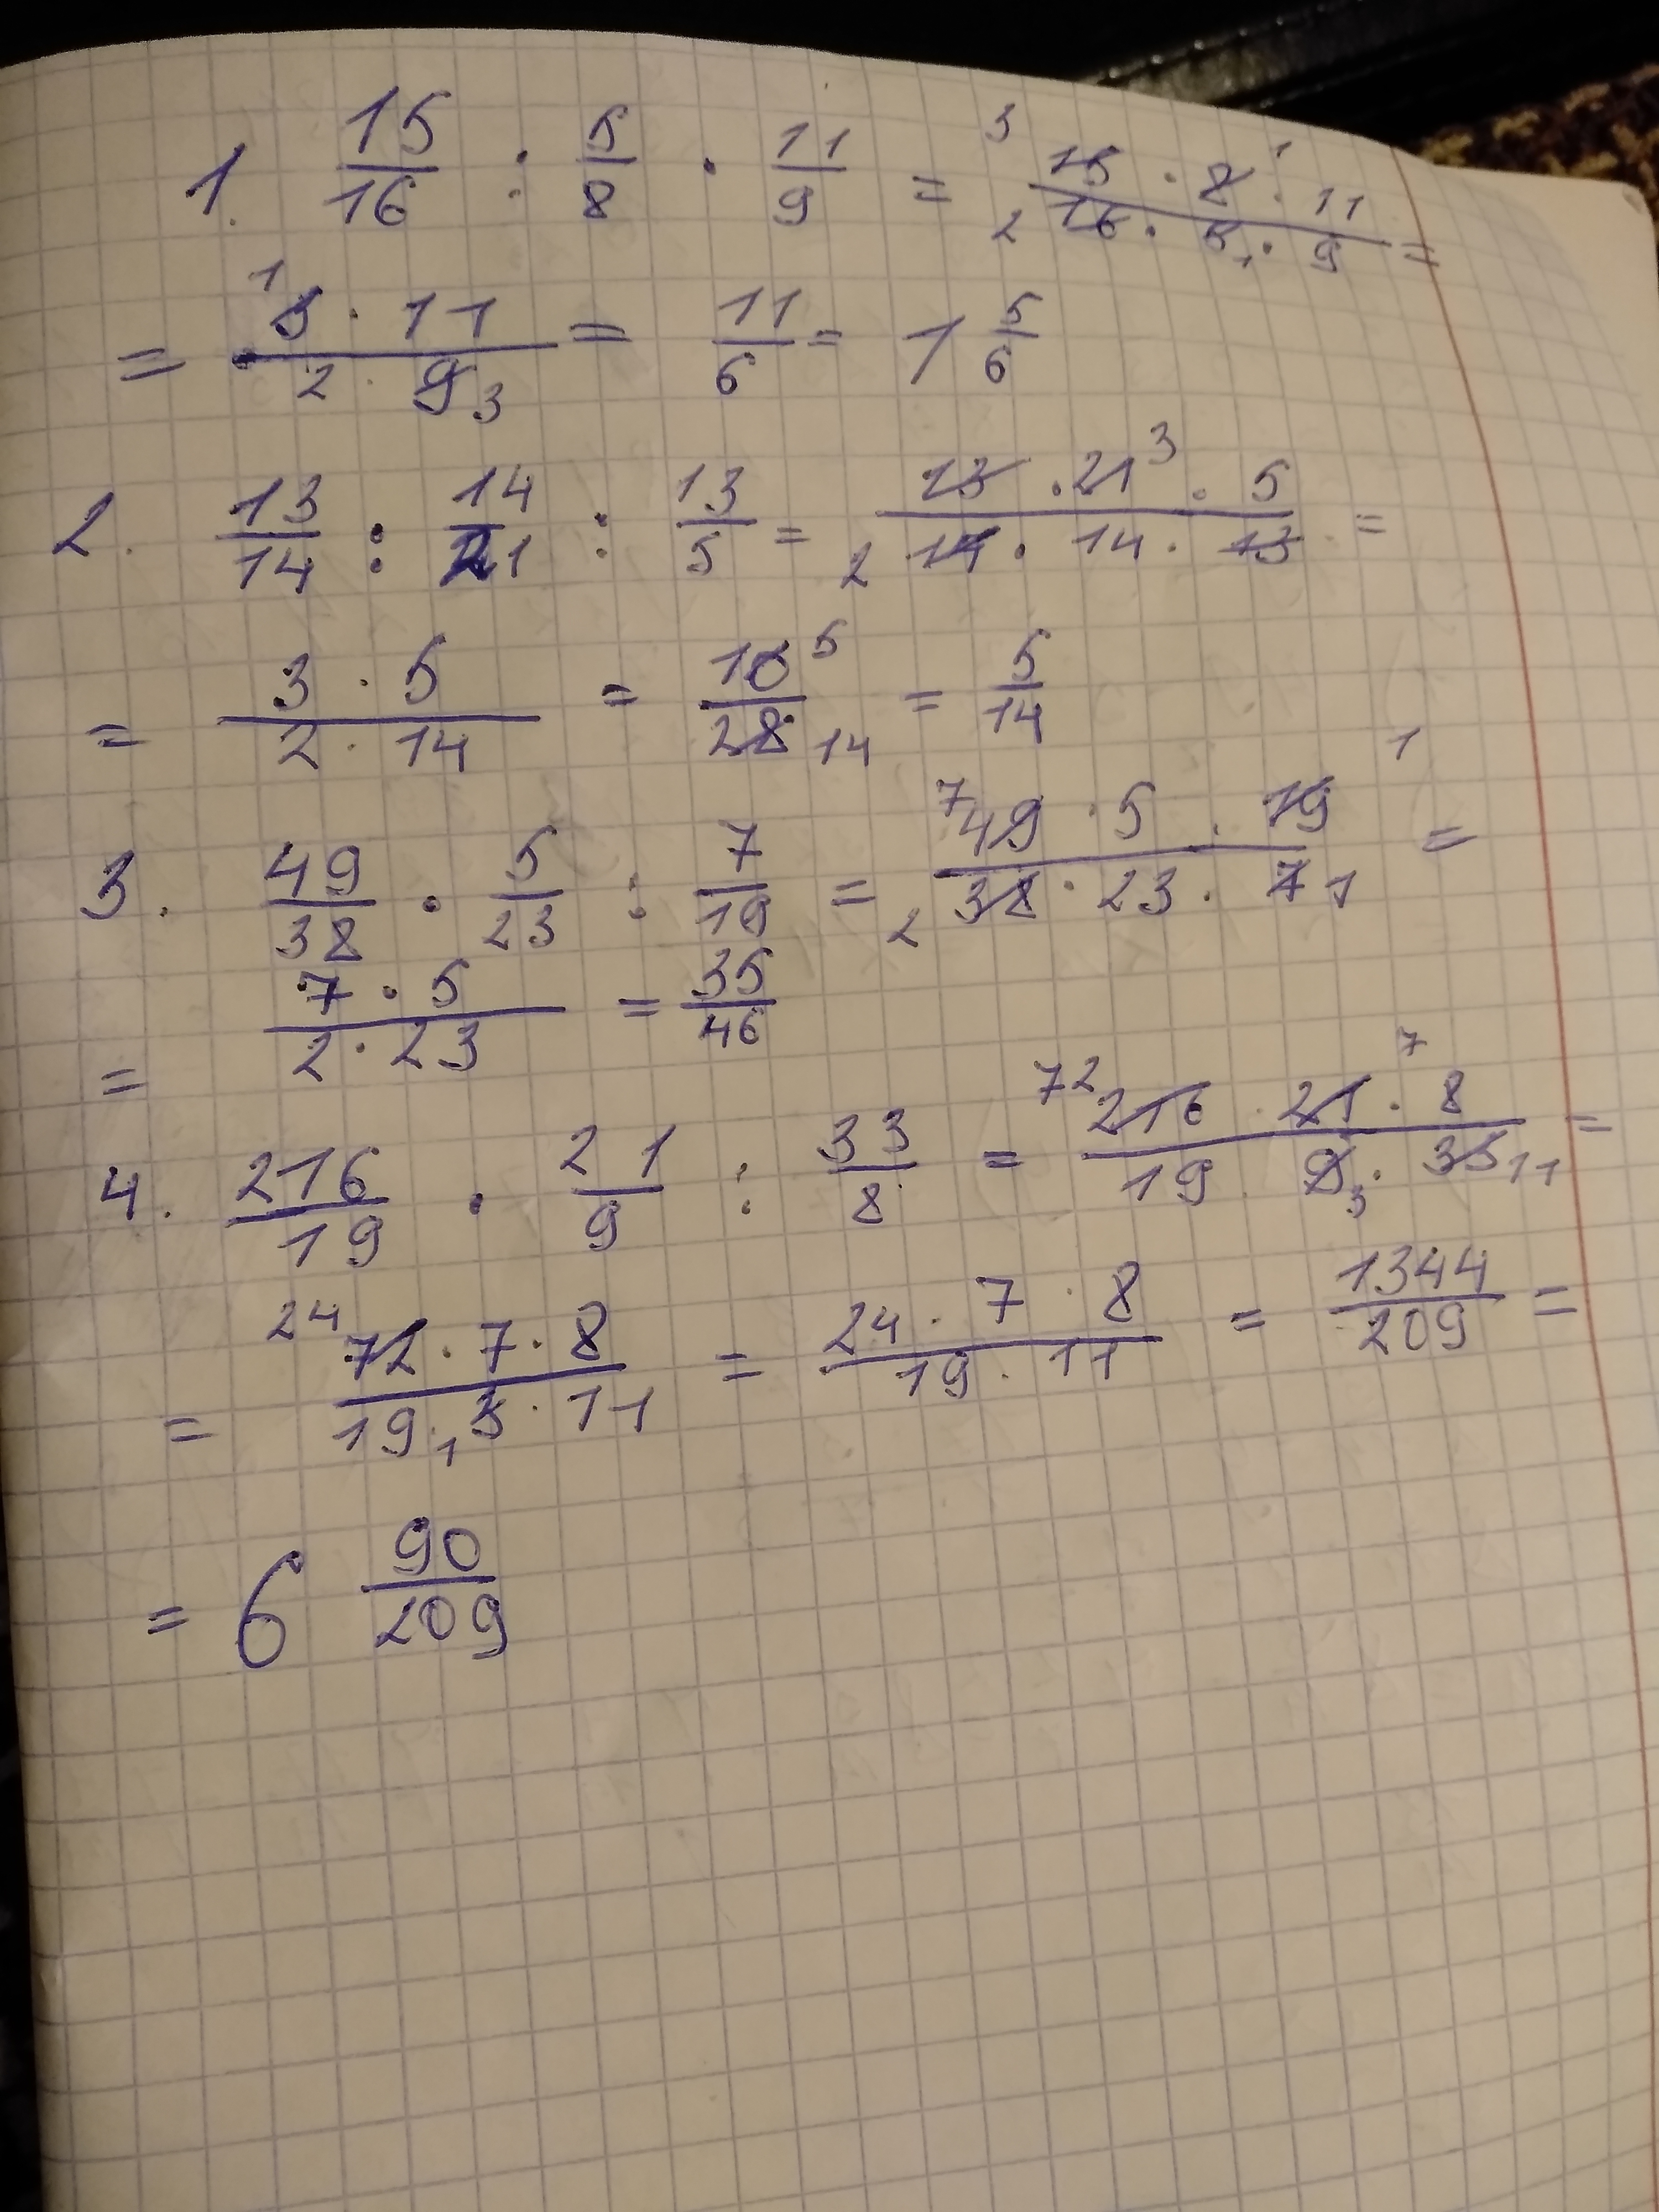 1. 15/16 : 5/8 · 11/9 = 3 15 · 8 1 · 11 / 2 16 · 5 1 · 9 =
= 1 3 · 11 / 2 · 9 3 = 11/6 = 1 5/6
2. 13/14 : 14/21 : 13/5 = 13 · 21 3 · 5 / 2 14 · 14 · 13 =
= 3 · 5 / 2 · 14 = 10 5 / 28 14 = 5/14
3. 49/38 · 5/23 : 7/19 = 7 49 · 5 · 19 1 / 2 38 · 23 · 7 1 =
= 7 · 5 / 2 · 23 = 35/46
4. 216/19 · 21/9 : 33/8 = 72 216 · 21 7 · 8 / 19 · 9 3 · 33 11 =
= 24 72 · 7 · 8 / 19 · 1 3 · 11 = 24 · 7 · 8 / 19 · 11 = 1344/209 =
= 6 90/209